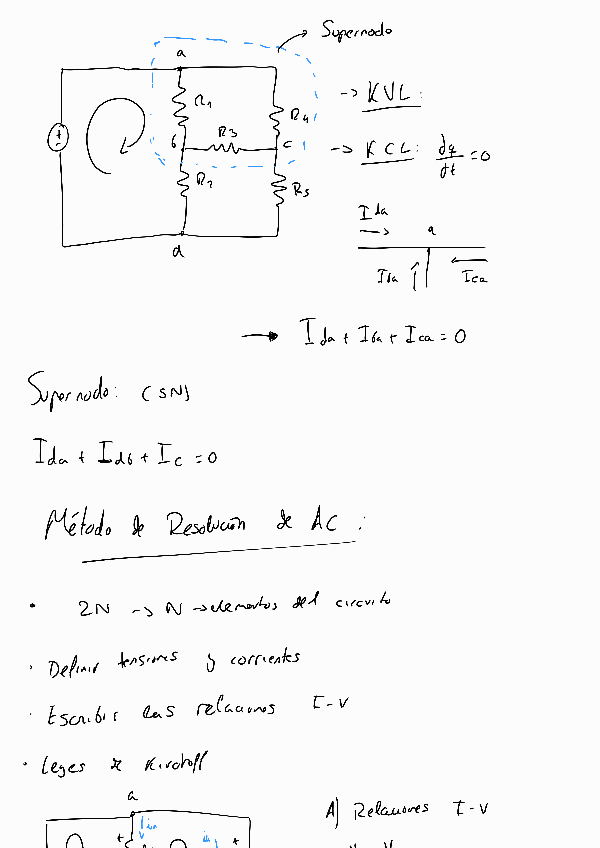 Supernodo
a
R1
R4
-> KVL:
+
-
b
R3
c
-> KCL: dq/dt = 0
R2
R5
d
Ida
a
Iba
Ica
-> Ida + Iba + Ica = 0
Supernodo: (SN)
Ida + Idb + Ic = 0
Método de Resolución de AC:
• 2N -> N -> elementos del circuito
• Definir tensiones y corrientes
• Escribir las relaciones I-V
• Leyes de Kirchoff
a
A) Relaciones I-V
+
+